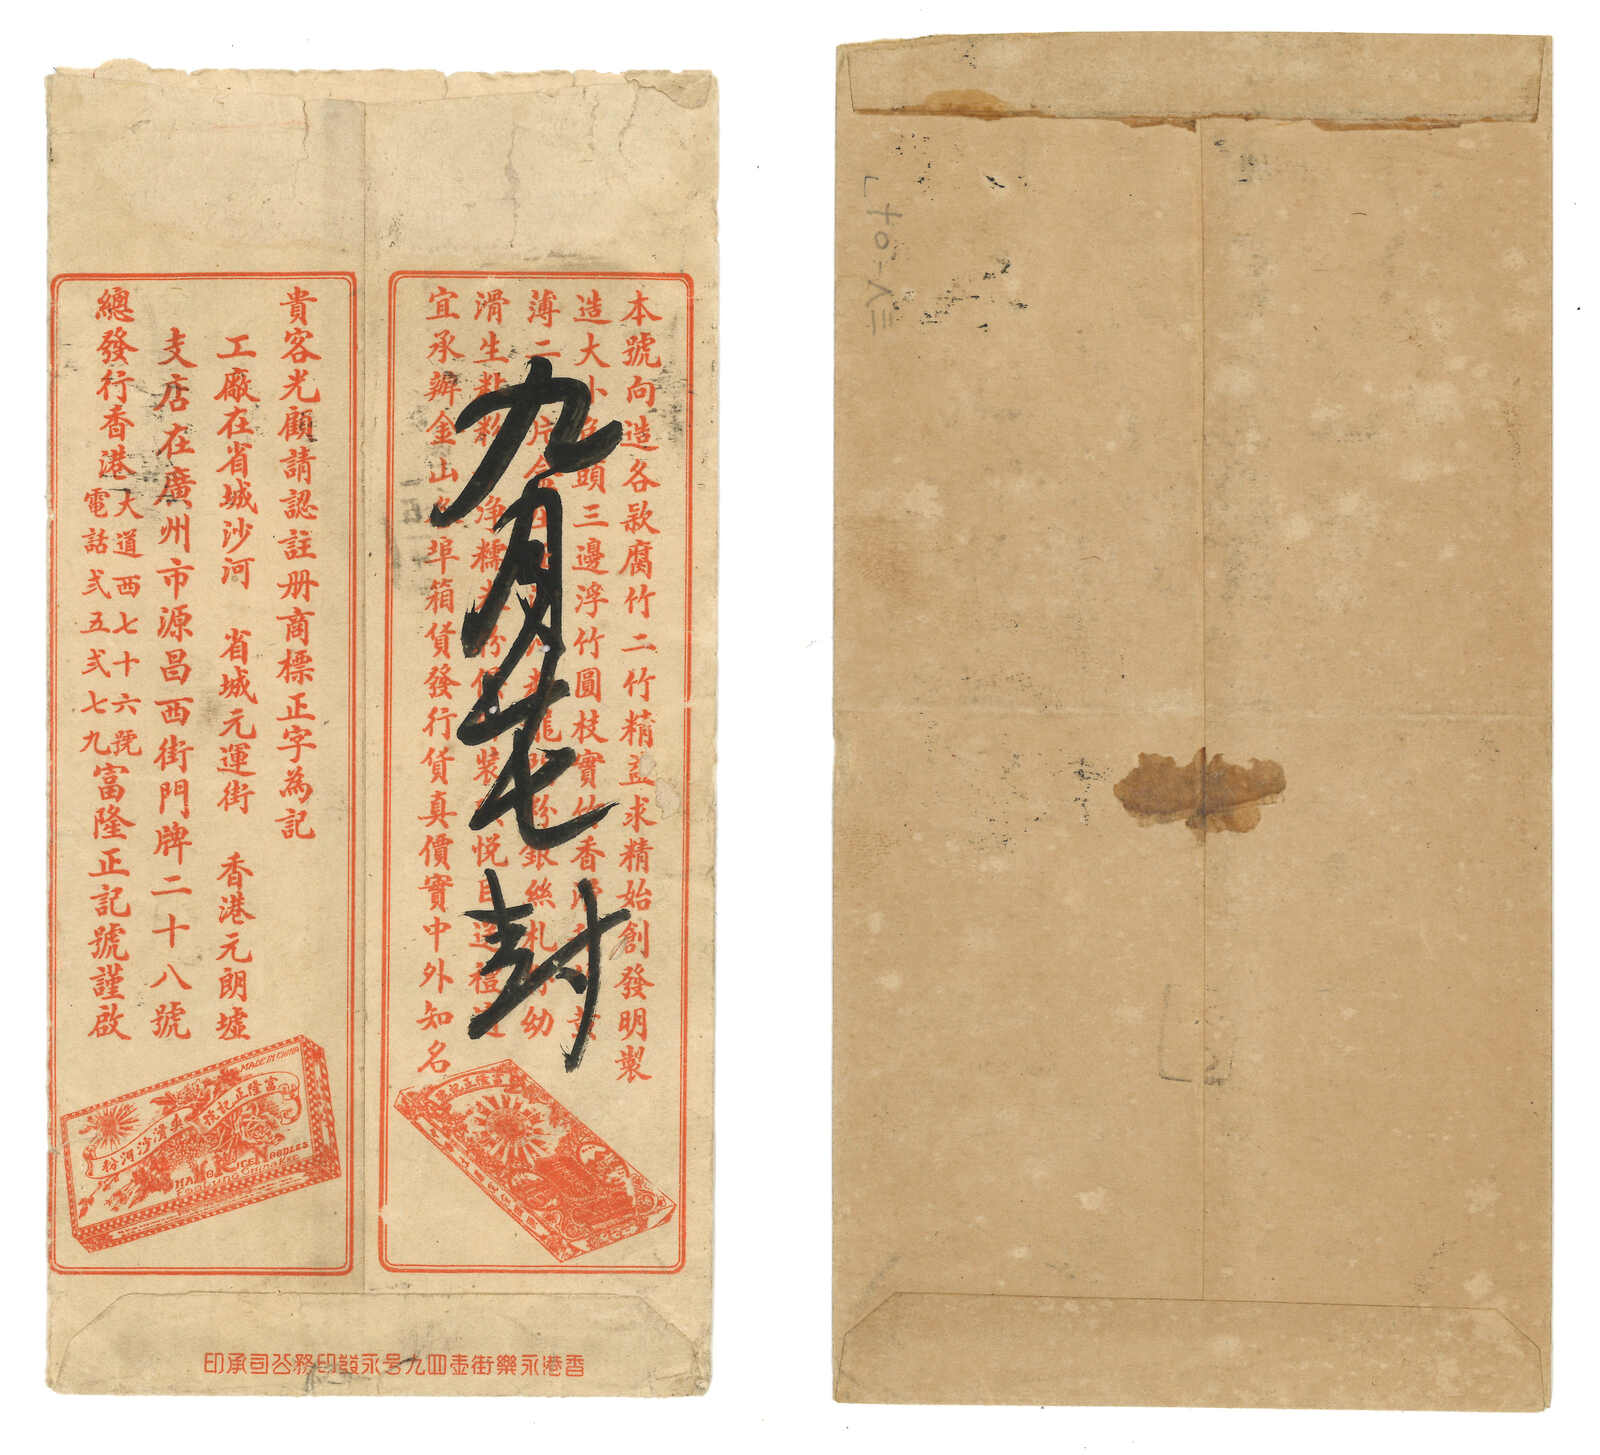 本號向造各款腐竹二竹精益求精始創發明製
造大小 頭三邊浮竹圓枝實竹香
薄二 粉銀絲札 幼
滑生 粉淨糯米粉 裝 悅目送禮
宜承辦金山 埠箱貨發行貨真價實中外知名
九月 封
貴客光顧請認註册商標正字為記
工廠在省城沙河 省城元運街 香港元朗墟
支店在廣州市源昌西街門牌二十八號
總發行香港大道西七十六號
電話弍五弍七九
富隆正記號謹啟
富隆正記號
MADE IN CHINA
富隆正記號
爽滑沙河粉
RICE NOODLES
香港永樂街壹四九号永發印務公司承印